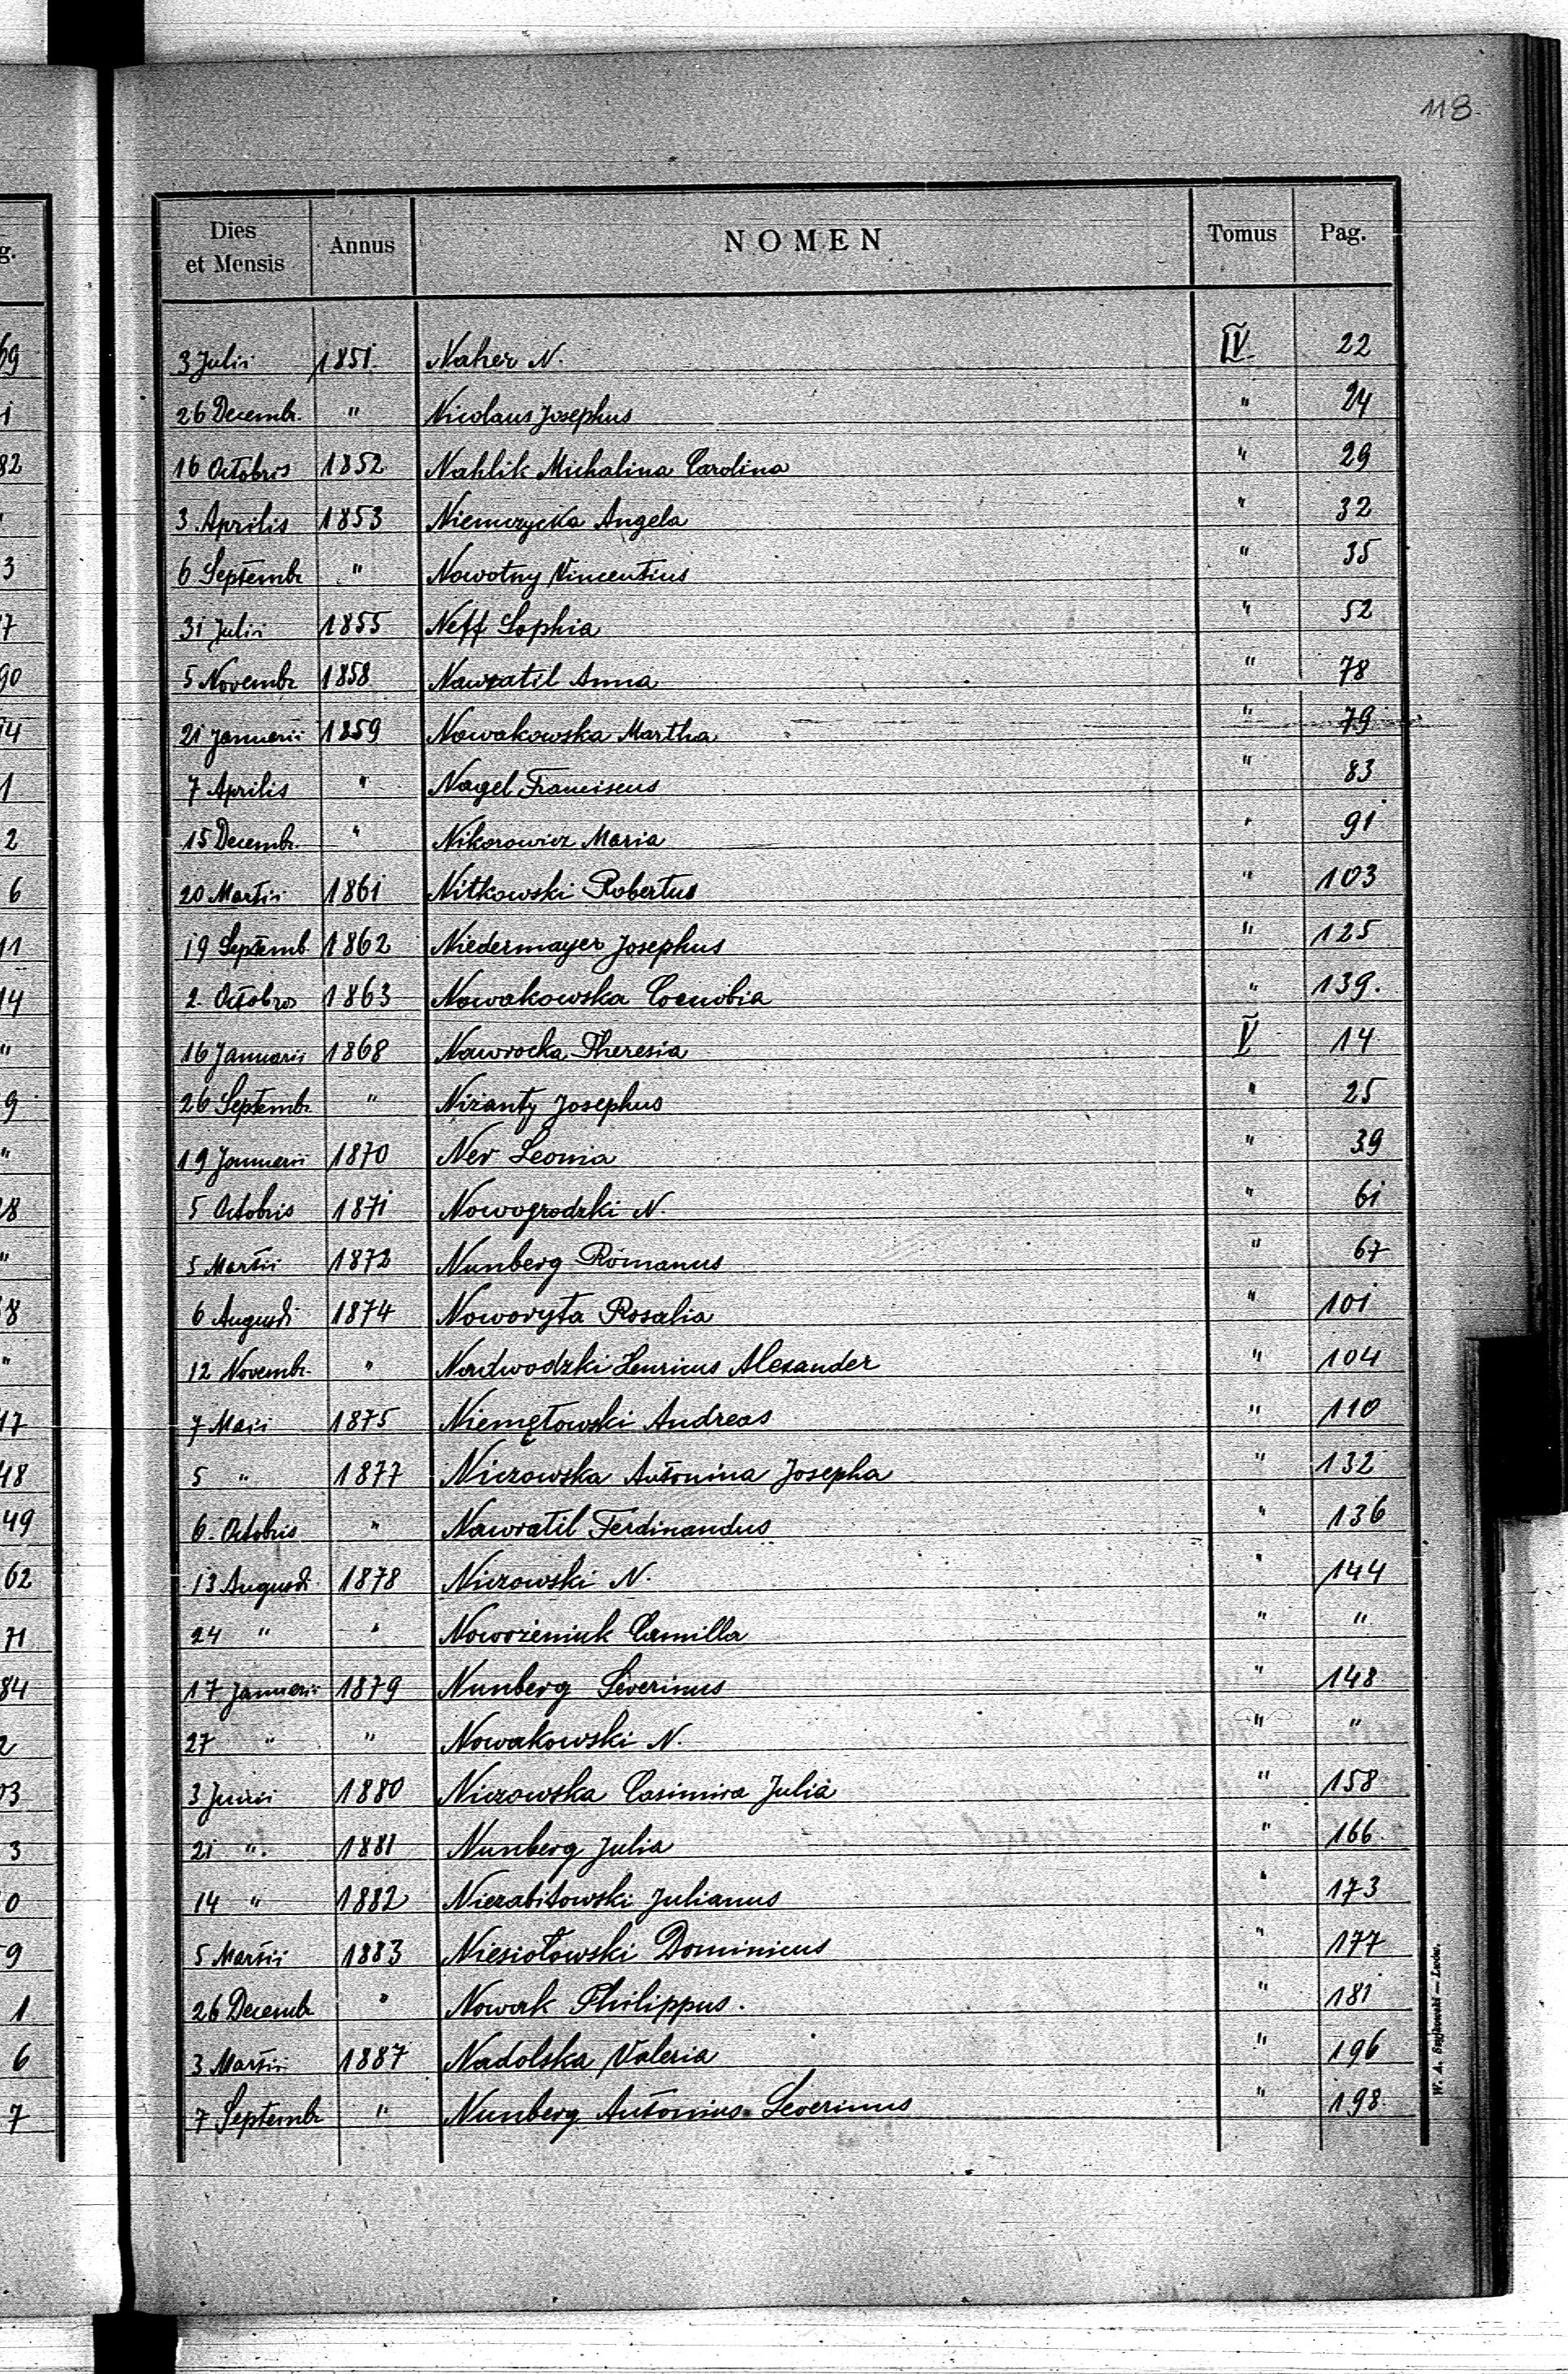 118
g. Dies et Mensis Annus NOMEN Tomus Pag.
69 3 Julii 1851 Naher N. IV 22
1 26 Decembr. " Nicolaus Josephus " 24
82 16 Octobris 1852 Nahlik Michalina Carolina " 29
" 3 Aprilis 1853 Niemczycka Angela " 32
3 6 Septembr " Nowotny Vincentius " 35
7 31 Julii 1855 Neff Sophia " 52
90 5 Novembr 1858 Nawratil Anna " 78
14 21 Januarii 1859 Nowakowska Martha " 79
1 7 Aprilis " Nagel Franciscus " 83
2 15 Decembr. " Nikorowicz Maria " 91
6 20 Martii 1861 Nitkowski Robertus " 103
11 19 Septemb 1862 Niedermayer Josephus " 125
14 2. Octobris 1863 Nowakowska Coenobia " 139.
" 16 Januarii 1868 Nawrocka Theresia V 14
9 26 Septembr " Niżanty Josephus " 25
" 19 Januarii 1870 Ner Leonia " 39
28 5 Octobris 1871 Nowogrodzki N. " 61
" 5 Martii 1872 Nunberg Romanus " 67
8 6 Augusti 1874 Noworyta Rosalia " 101
" 12 Novembr. " Nadwodzki Henricus Alexander " 104
17 7 Maii 1875 Niemętowski Andreas " 110
48 5 " 1877 Niczowska Antonina Josepha " 132
49 6. Octobris " Nawratil Ferdinandus " 136
62 13 Augusti 1878 Niczowski N. " 144
71 24 " " Noworzeniuk Camilla " "
84 17 Januarii 1879 Nunberg Severinus " 148
2 27 " " Nowakowski N. " "
03 3 Junii 1880 Niczowska Casimira Julia " 158
3 21 " 1881 Nunberg Julia " 166
0 14 " 1882 Niezabitowski Julianus " 173
9 5 Martii 1883 Niesiołowski Dominicus " 177
1 26 Decembr " Nowak Philippus. " 181
6 3 Martii 1887 Nadolska Valeria " 196
7 7 Septembr " Nunberg Antonius Severinus " 198.
W. A. Szyjkowski — Lwów.